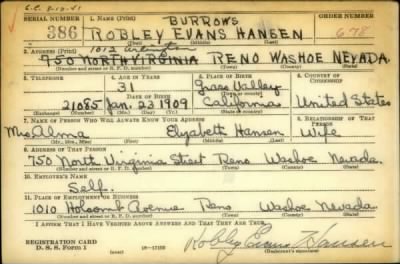 G.C. 8-12-41
SERIAL NUMBER 1. NAME (Print) BURROWS ORDER NUMBER
386 ROBLEY EVANS HANSEN 678
(First) (Middle) (Last)
2. ADDRESS (Print) 1012 Arlington
750 NORTH VIRGINIA RENO WASHOE NEVADA.
(Number and street or R. F. D. number) (Town) (County) (State)
3. TELEPHONE 4. AGE IN YEARS 5. PLACE OF BIRTH 6. COUNTRY OF CITIZENSHIP
31 Grass Valley
DATE OF BIRTH (Town or county)
21085 Jan. 23 1909 California United States
(Mo.) (Day) (Yr.) (State or country)
7. NAME OF PERSON WHO WILL ALWAYS KNOW YOUR ADDRESS 8. RELATIONSHIP OF THAT PERSON
Mrs Alma Elizabeth Hansen Wife
(Mr., Mrs., Miss) (First) (Middle) (Last)
9. ADDRESS OF THAT PERSON
750 North Virginia Street Reno Washoe Nevada.
(Number and street or R. F. D. number) (Town) (County) (State)
10. EMPLOYER'S NAME
Self.
11. PLACE OF EMPLOYMENT OR BUSINESS
1010 Holcomb Avenue Reno Washoe Nevada
(Number and street or R. F. D. number) (Town) (County) (State)
I AFFIRM THAT I HAVE VERIFIED ABOVE ANSWERS AND THAT THEY ARE TRUE.
REGISTRATION CARD
D. S. S. Form 1 16—17105 Robley Evans Hansen
(Registrant's signature)